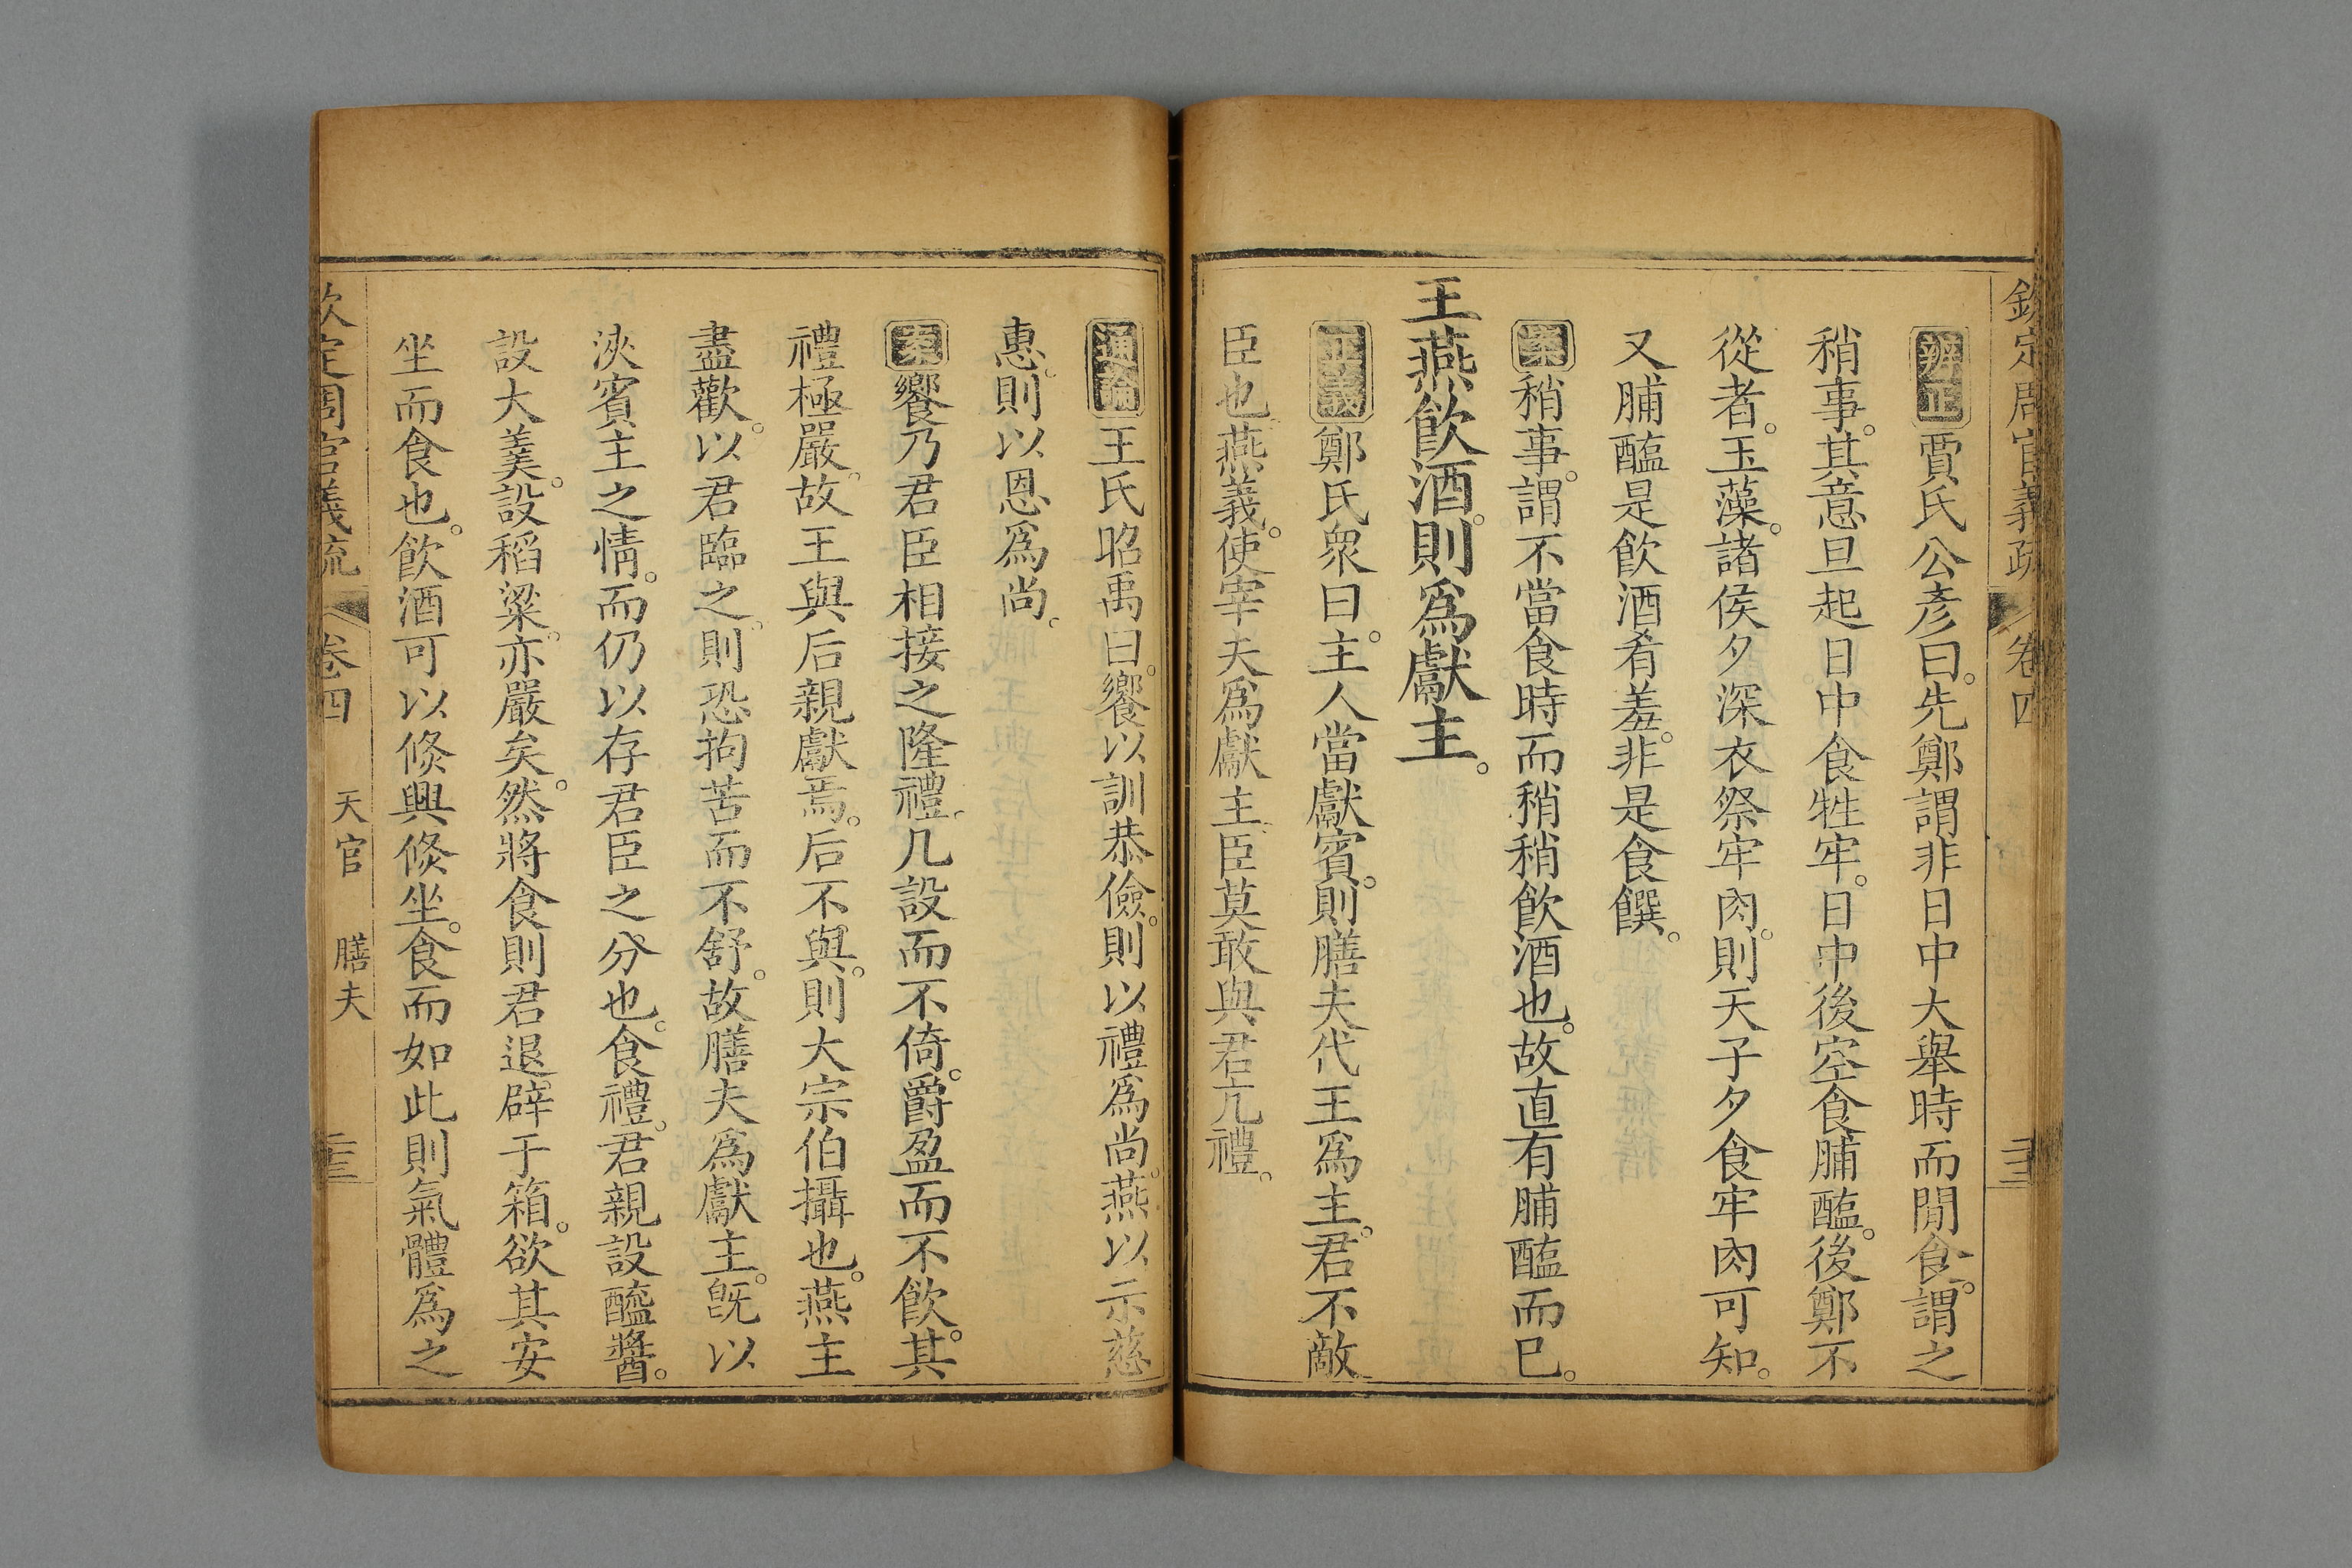 欽定周官義疏 卷四
辨正 賈氏公彥曰。先鄭謂非日中大舉時而閒食。謂之
稍事。其意旦起日中食牲牢。日中後空食脯醢。後鄭不
從者。玉藻。諸侯夕深衣祭牢肉。則天子夕食牢肉可知。
又脯醢是飲酒肴羞。非是食饌。
案 稍事。謂不當食時而稍稍飲酒也。故直有脯醢而已。
王燕飲酒。則爲獻主。
正義 鄭氏衆曰。主人當獻賓。則膳夫代王爲主。君不敵
臣也。燕義。使宰夫爲獻主。臣莫敢與君亢禮。
通論 王氏昭禹曰。饗以訓恭儉。則以禮爲尚。燕以示慈
惠。則以恩爲尚。
案 饗乃君臣相接之隆禮。几設而不倚。爵盈而不飲。其
禮極嚴。故王與后親獻焉。后不與。則大宗伯攝也。燕主
盡歡。以君臨之。則恐拘苦而不舒。故膳夫爲獻主。旣以
浹賓主之情。而仍以存君臣之分也。食禮。君親設醯醬。
設大羹。設稻粱。亦嚴矣。然將食則君退辟于箱。欲其安
坐而食也。飲酒可以倐興倐坐。食而如此則氣體爲之
欽定周官義疏 卷四 天官 膳夫